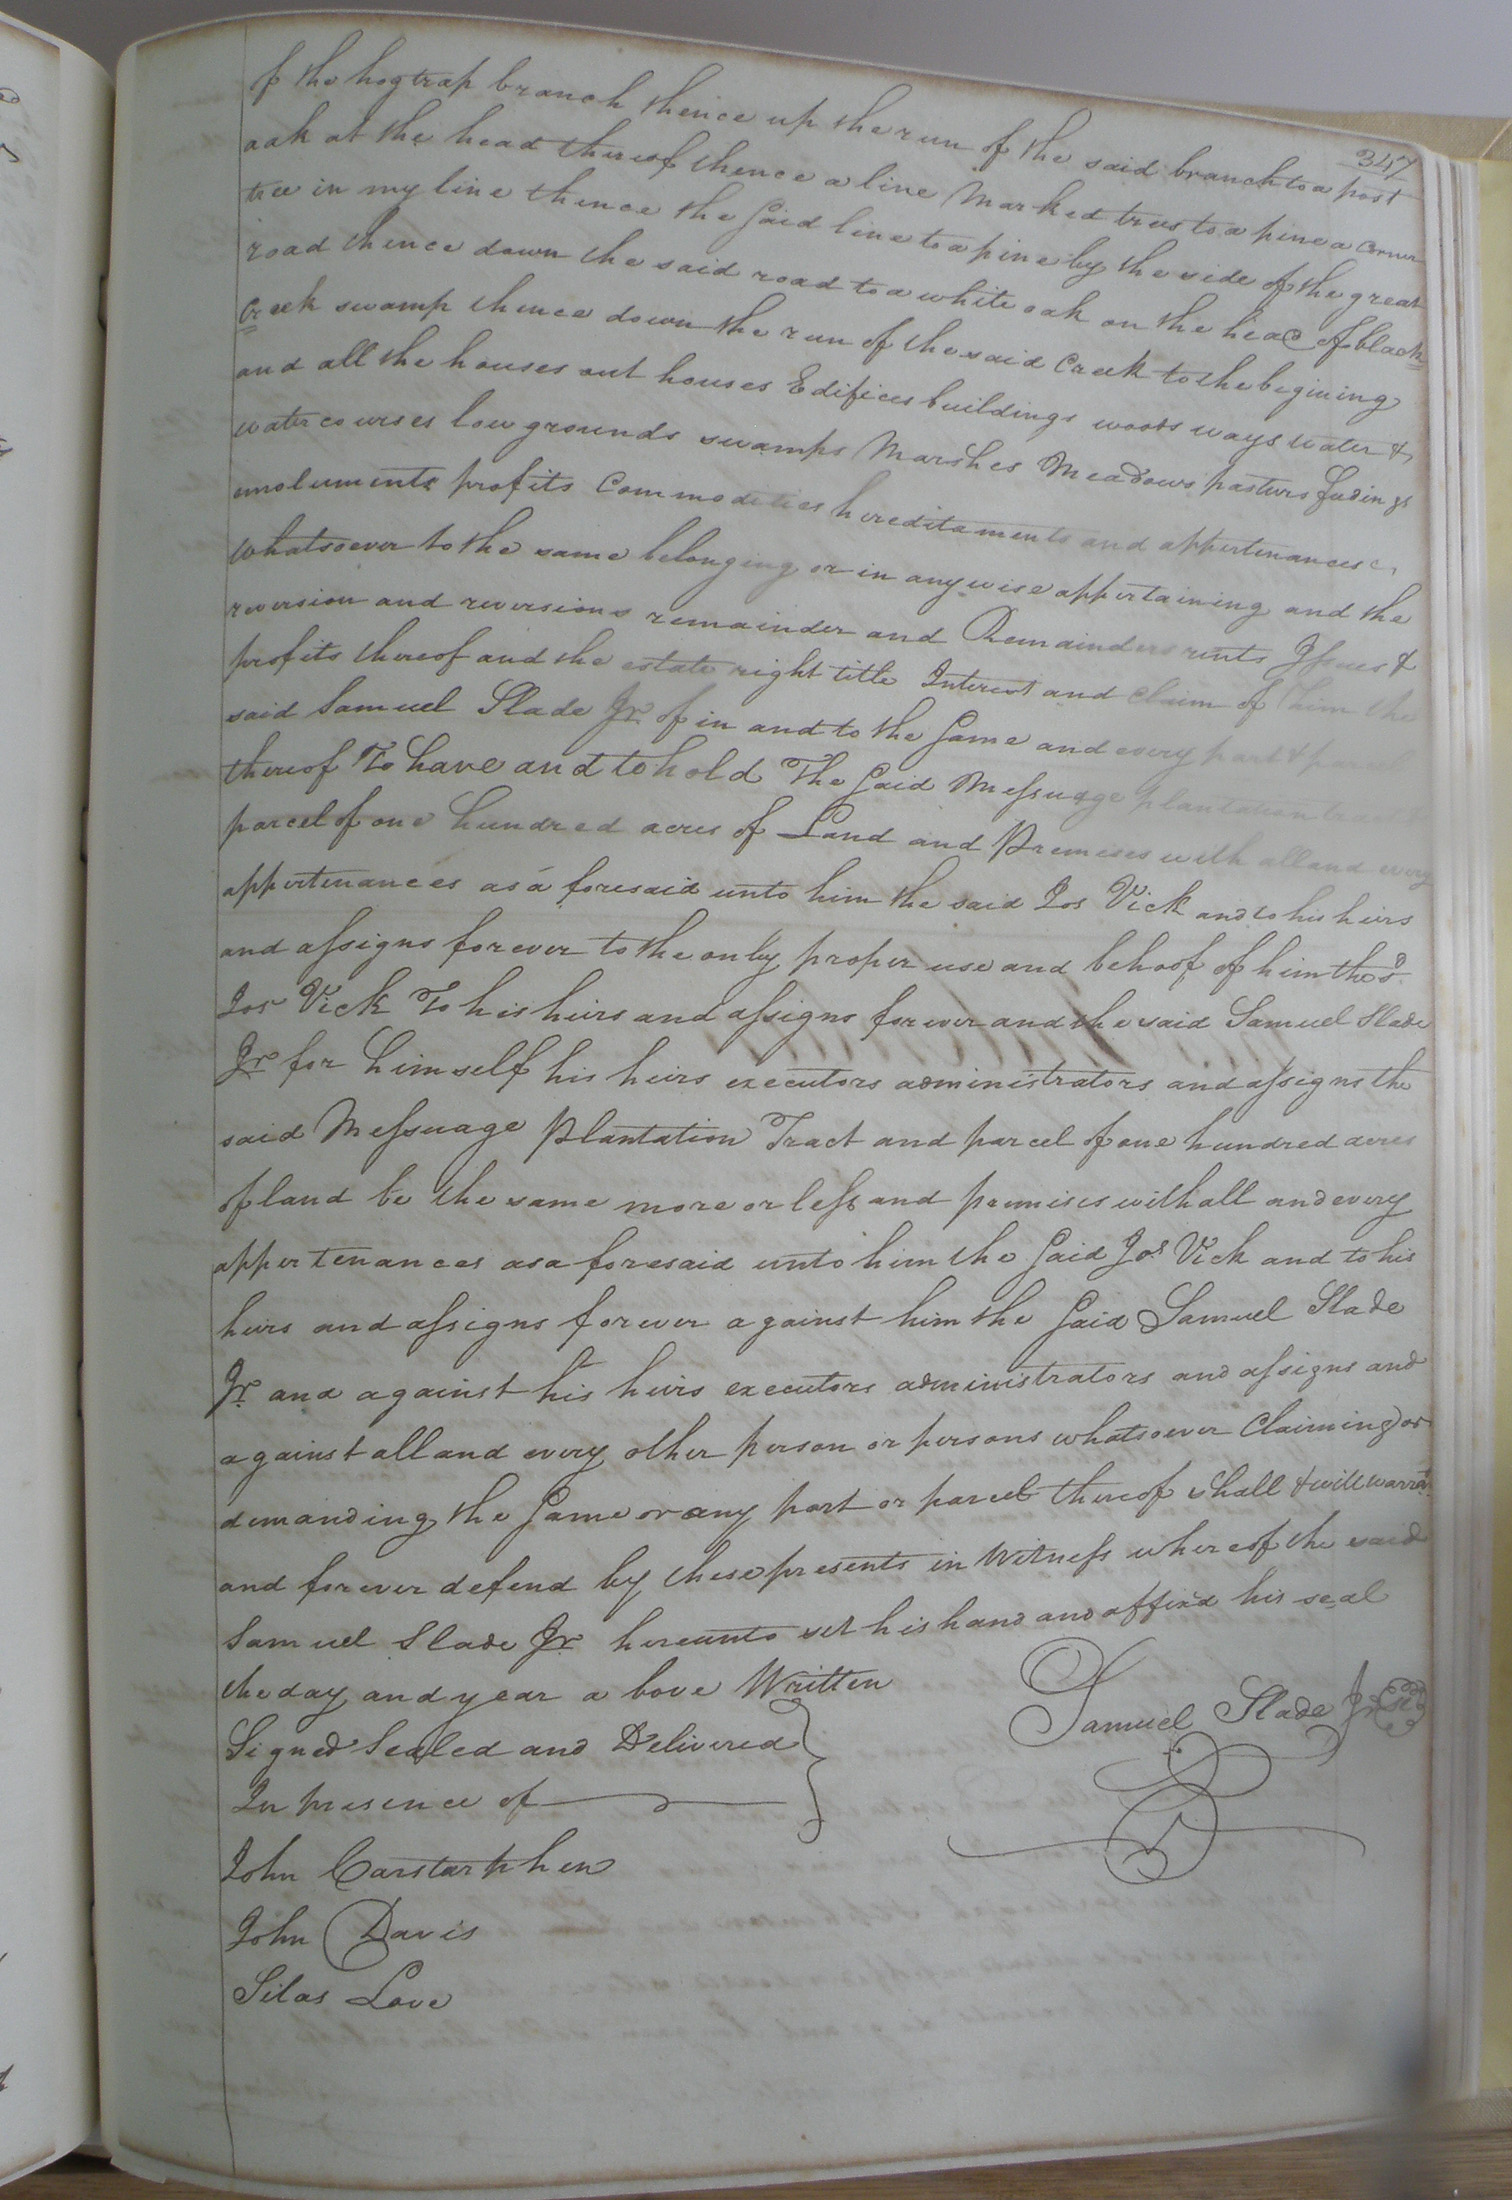 347
of the hogtrap branch thence up the run of the said branch to a post
oak at the head thereof thence a line Marked trees to a pine a corner
tree in my line thence the said line to a pine by the side of the great
road thence down the said road to a white oak on the head of black
Creek swamp thence down the run of the said Creek to the begining
and all the houses out houses Edifices buildings woods ways water &
water courses low grounds swamps Marshes Meadows pasturs feedings
emoluments profits Commodities hereditaments and appertenances
whatsoever to the same belonging or in anywise appertaining and the
reversion and reversions remainder and Remainders rents Issues &
profits thereof and the estate right title Interest and claim of him the
said Samuel Slade Jr. of in and to the same and every part & parcel
thereof To have and to hold The said Messuage plantation tract &
parcel of one hundred acres of Land and Premeses with all and every
appertenances as a foresaid unto him the said Jos Vick and to his heirs
and assigns forever to the only proper use and behoof of him the sd.
Jos Vick To his heirs and assigns forever and the said Samuel Slade
Jr. for himself his heirs executors administrators and assigns the
said Messuage Plantation Tract and parcel of one hundred acres
of land be the same more or less and premises with all and every
appertenances as a foresaid unto him the said Jos Vick and to his
heirs and assigns forever against him the said Samuel Slade
Jr. and against his heirs executors administrators and assigns and
against all and every other person or persons whatsoever Claiming or
demanding the same or any part or parcel thereof shall & will warrat
and forever defend by these presents in Witness whereof the said
Samuel Slade Jr. hereunto set his hand and affix'd his seal
the day and year a bove Written
Samuel Slade Jr.
Signed Sealed and Delivered
In presence of
John Carstarphen
John Davis
Silas Love